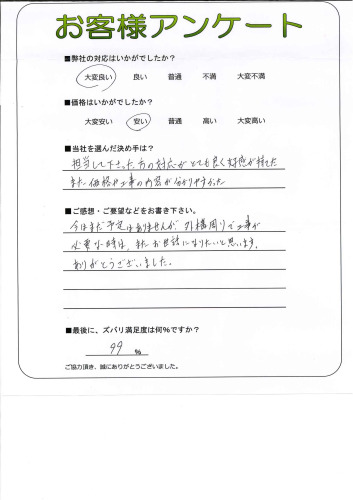 お客様アンケート
■弊社の対応はいかがでしたか？
大変良い 良い 普通 不満 大変不満
■価格はいかがでしたか？
大変安い 安い 普通 高い 大変高い
■当社を選んだ決め手は？
担当して下さった方の対応がとても良く好感が持てた
また価格や工事の内容が分りやすかった
■ご感想・ご要望などをお書き下さい。
今はまだ予定はありませんが、外構周りで工事が
必要な時は、またお世話になりたいと思います。
ありがとうございました。
■最後に、ズバリ満足度は何%ですか？
99 %
ご協力頂き、誠にありがとうございました。